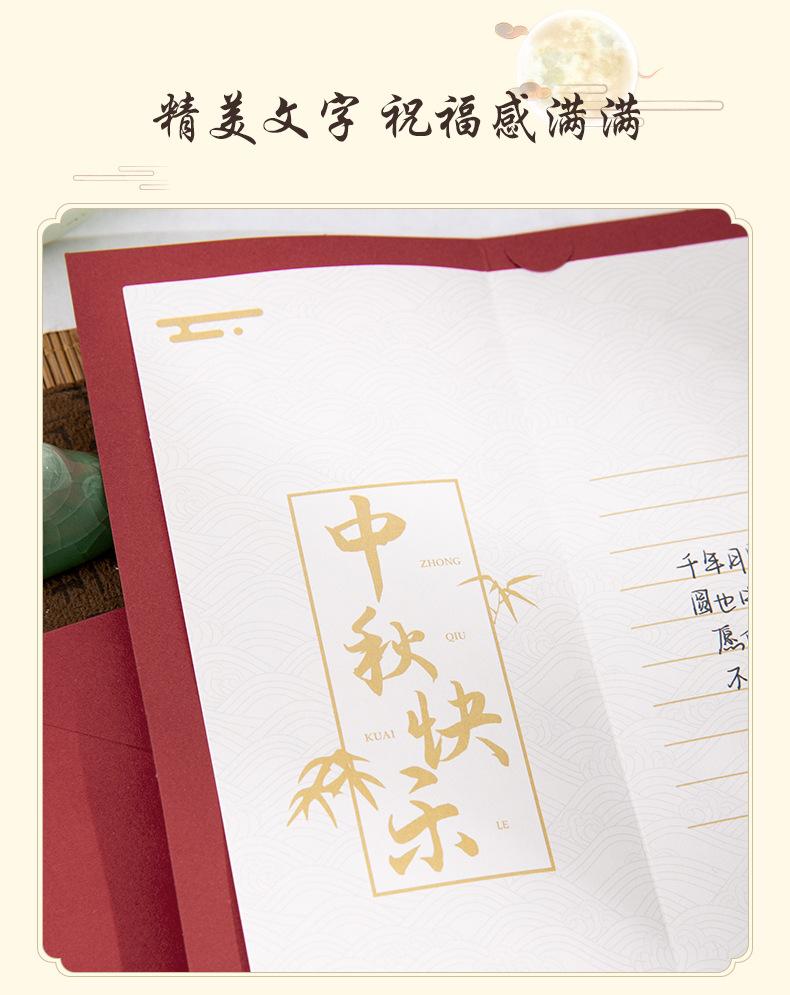 精美文字 祝福感满满
中
ZHONG
秋
QIU
快
KUAI
乐
LE
千年月
圓也
愿
不